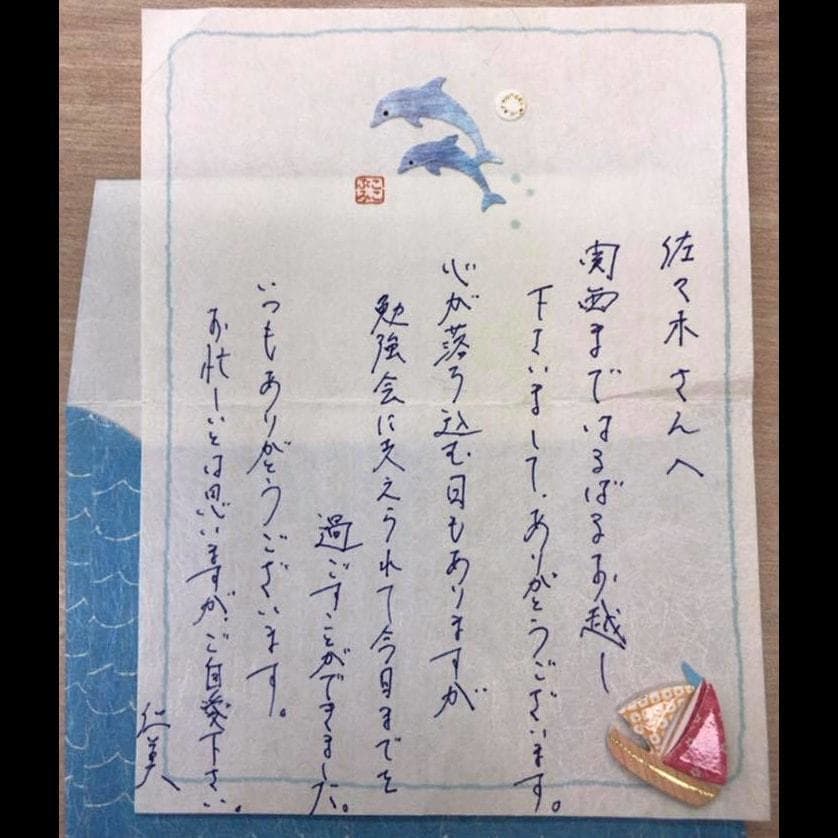 佐々木さんへ
関西まではるばるお越し
下さいまして、ありがとうございます。
心が落ち込む日もありますが
勉強会に支えられて今日までを
過ごすことができました。
いつもありがとうございます。
お忙しいとは思いますが、ご自愛下さい。
仁美
ここ
ぶみ